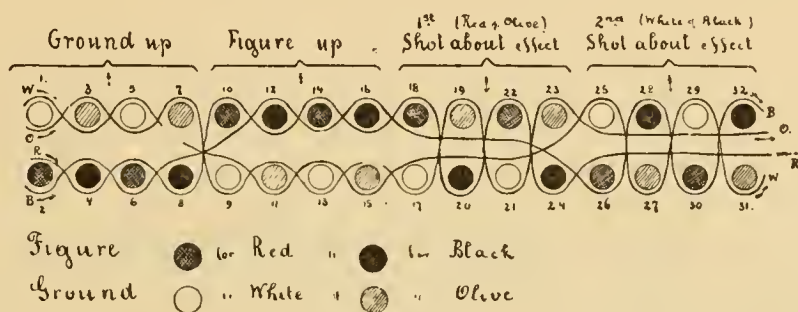 1st (Red & Olive) 2nd (White & Black)
Ground up Figure up Shot about effect Shot about effect
W 1. 3 5 7 10 12 14 16 18 19 22 23 25 28 29 32
B
O O.
R R
B 2 4 6 8 9 11 13 15 17 20 21 24 26 27 30 31. W
Figure for Red " for Black
Ground " White & " Olive